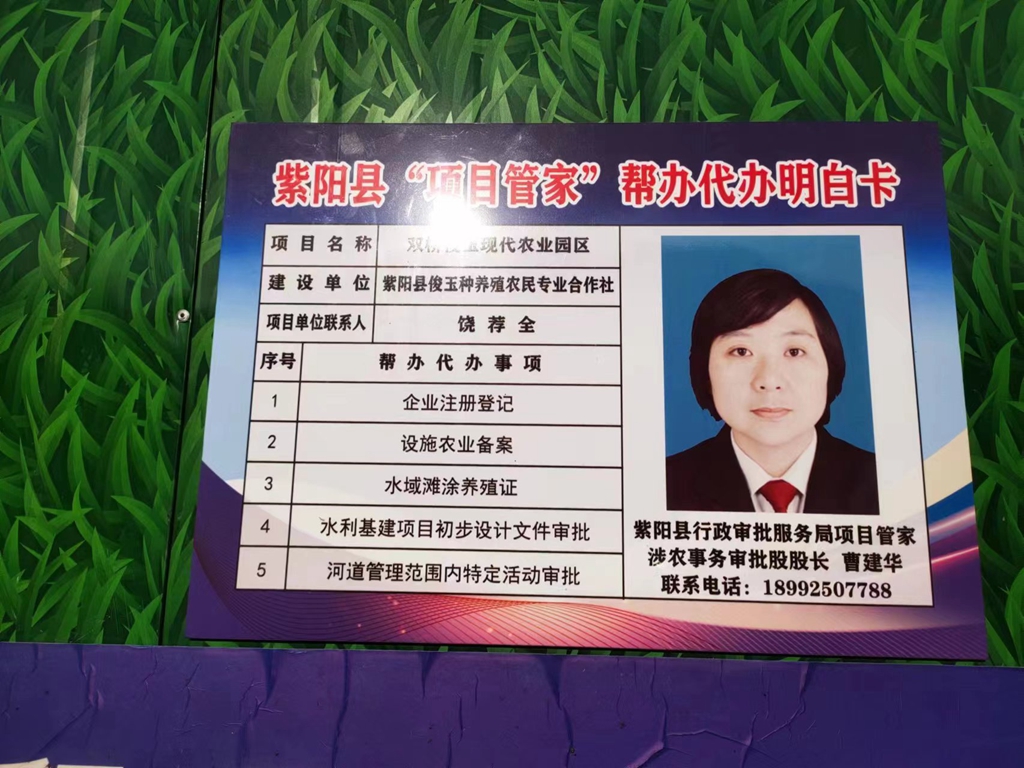 紫阳县“项目管家”帮办代办明白卡
项目名称 双桥俊玉现代农业园区
建设单位 紫阳县俊玉种养殖农民专业合作社
项目单位联系人 饶荐全
序号 帮办代办事项
1 企业注册登记
2 设施农业备案
3 水域滩涂养殖证
4 水利基建项目初步设计文件审批
5 河道管理范围内特定活动审批
紫阳县行政审批服务局项目管家
涉农事务审批股股长 曹建华
联系电话：18992507788